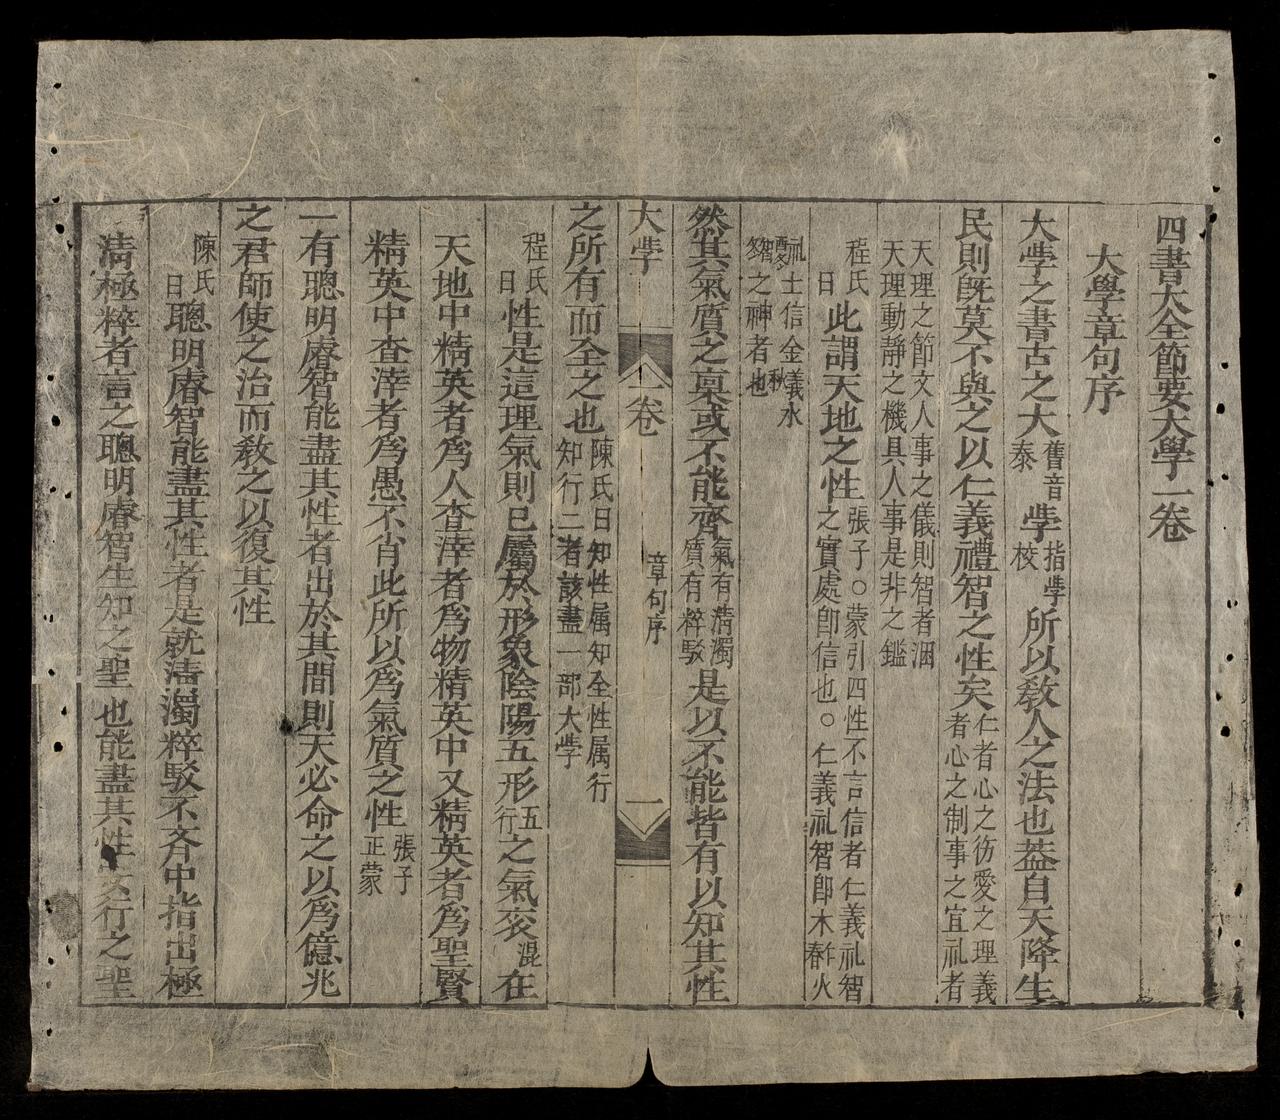 四書大全節要大學一卷
大學章句序
大斈之書古之大舊音泰斈指斈校所以敎人之法也葢自天降生
民則旣莫不與之以仁義禮智之性矣仁者心之㣂愛之理義者心之制事之宜礼者
天理之節文人事之儀則智者涃天理動靜之機具人事是非之鑑
程氏曰此謂天地之性張子○蒙引四性不言信者仁義礼智之實處卽信也○仁義礼智卽木春火
礼土信金義秋水智之神者也
然其氣質之稟或不能齊氣有淸濁質有粹駁是以不能皆有以知其性
大斈 一卷 章句序 一
之所有而全之也陳氏曰知性属知全性属行知行二者該盡一部大斈
程氏曰性是這理氣則已屬於形象陰陽五形五行之氣交混在
天地中精英者爲人查滓者爲物精英中又精英者爲聖賢
精英中查滓者爲愚不肖此所以爲氣質之性張子正蒙
一有聰明睿智能盡其性者出於其間則天必命之以爲億兆
之君師使之治而敎之以復其性
陳氏曰聰明睿智能盡其性者是就淸濁粹駁不斉中指出極
淸極粹者言之聰明睿智生知之聖也能盡其性安行之聖